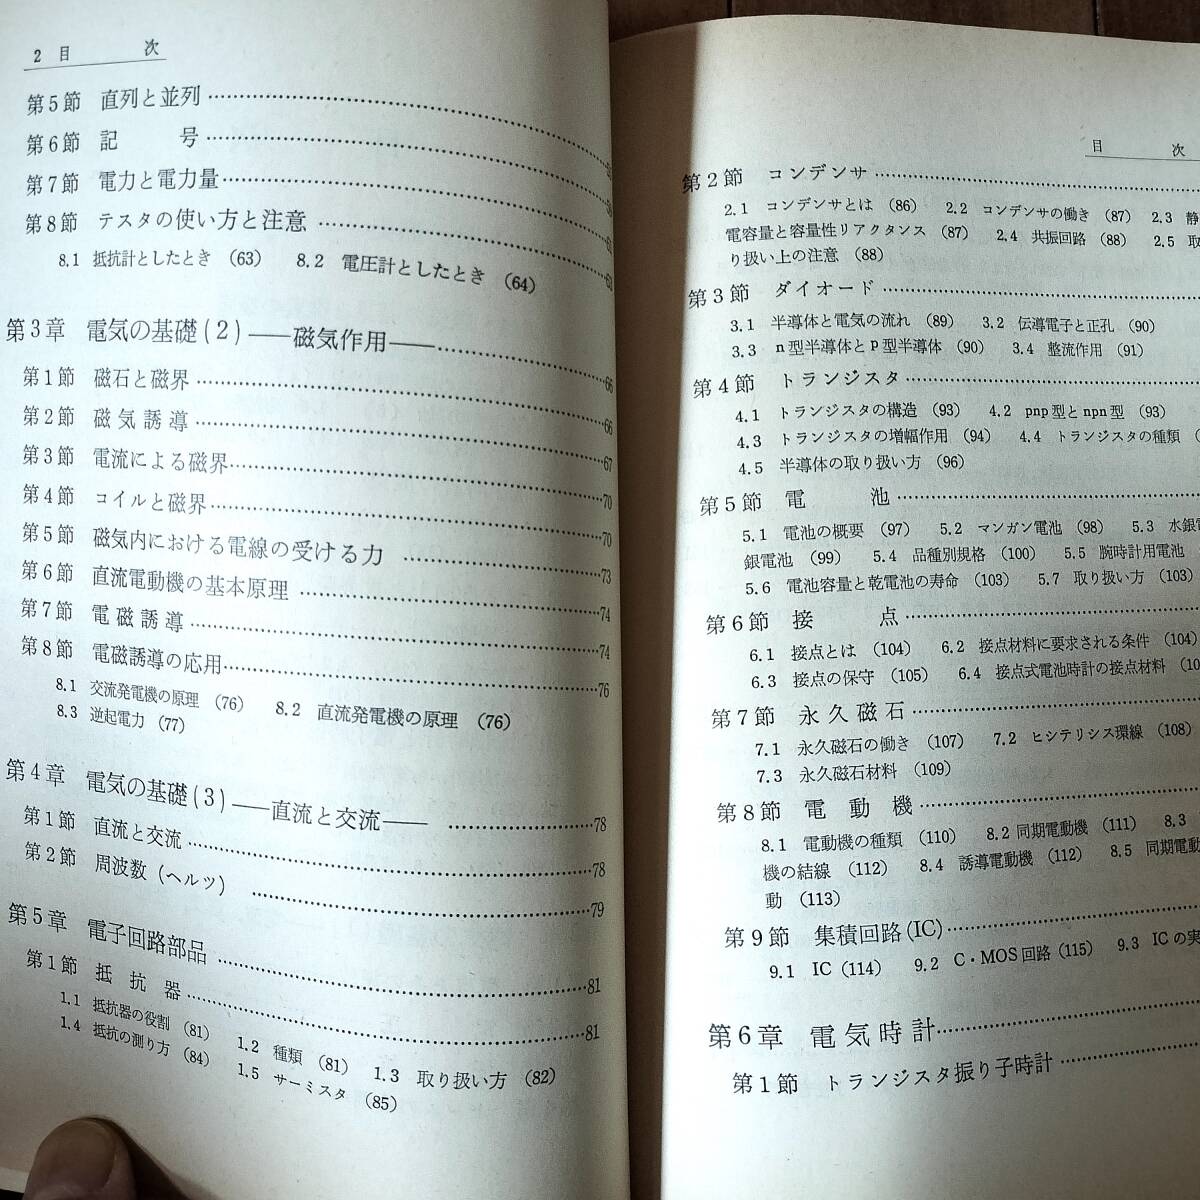 2 目 次
第5節 直列と並列
第6節 記 号
第7節 電力と電力量
第8節 テスタの使い方と注意
8.1 抵抗計としたとき (63) 8.2 電圧計としたとき (64)
63
第3章 電気の基礎(2)——磁気作用——
66
第1節 磁石と磁界
66
第2節 磁気誘導
67
第3節 電流による磁界
70
第4節 コイルと磁界
70
第5節 磁気内における電線の受ける力
73
第6節 直流電動機の基本原理
74
第7節 電磁誘導
74
第8節 電磁誘導の応用
76
8.1 交流発電機の原理 (76) 8.2 直流発電機の原理 (76)
8.3 逆起電力 (77)
第4章 電気の基礎(3)——直流と交流——
78
第1節 直流と交流
78
第2節 周波数 (ヘルツ)
79
第5章 電子回路部品
81
第1節 抵抗器
81
1.1 抵抗器の役割 (81) 1.2 種類 (81) 1.3 取り扱い方 (82)
1.4 抵抗の測り方 (84) 1.5 サーミスタ (85)
目 次
第2節 コンデンサ
2.1 コンデンサとは (86) 2.2 コンデンサの働き (87) 2.3 静
電容量と容量性リアクタンス (87) 2.4 共振回路 (88) 2.5 取
り扱い上の注意 (88)
第3節 ダイオード
3.1 半導体と電気の流れ (89) 3.2 伝導電子と正孔 (90)
3.3 n型半導体とp型半導体 (90) 3.4 整流作用 (91)
第4節 トランジスタ
4.1 トランジスタの構造 (93) 4.2 pnp型とnpn型 (93)
4.3 トランジスタの増幅作用 (94) 4.4 トランジスタの種類 (
4.5 半導体の取り扱い方 (96)
第5節 電 池
5.1 電池の概要 (97) 5.2 マンガン電池 (98) 5.3 水銀電
銀電池 (99) 5.4 品種別規格 (100) 5.5 腕時計用電池
5.6 電池容量と乾電池の寿命 (103) 5.7 取り扱い方 (103)
第6節 接 点
6.1 接点とは (104) 6.2 接点材料に要求される条件 (104)
6.3 接点の保守 (105) 6.4 接点式電池時計の接点材料 (10
第7節 永久磁石
7.1 永久磁石の働き (107) 7.2 ヒシテリシス環線 (108)
7.3 永久磁石材料 (109)
第8節 電動機
8.1 電動機の種類 (110) 8.2 同期電動機 (111) 8.3
機の結線 (112) 8.4 誘導電動機 (112) 8.5 同期電動
動 (113)
第9節 集積回路(IC)
9.1 IC (114) 9.2 C・MOS回路 (115) 9.3 ICの実
第6章 電気時計
第1節 トランジスタ振り子時計